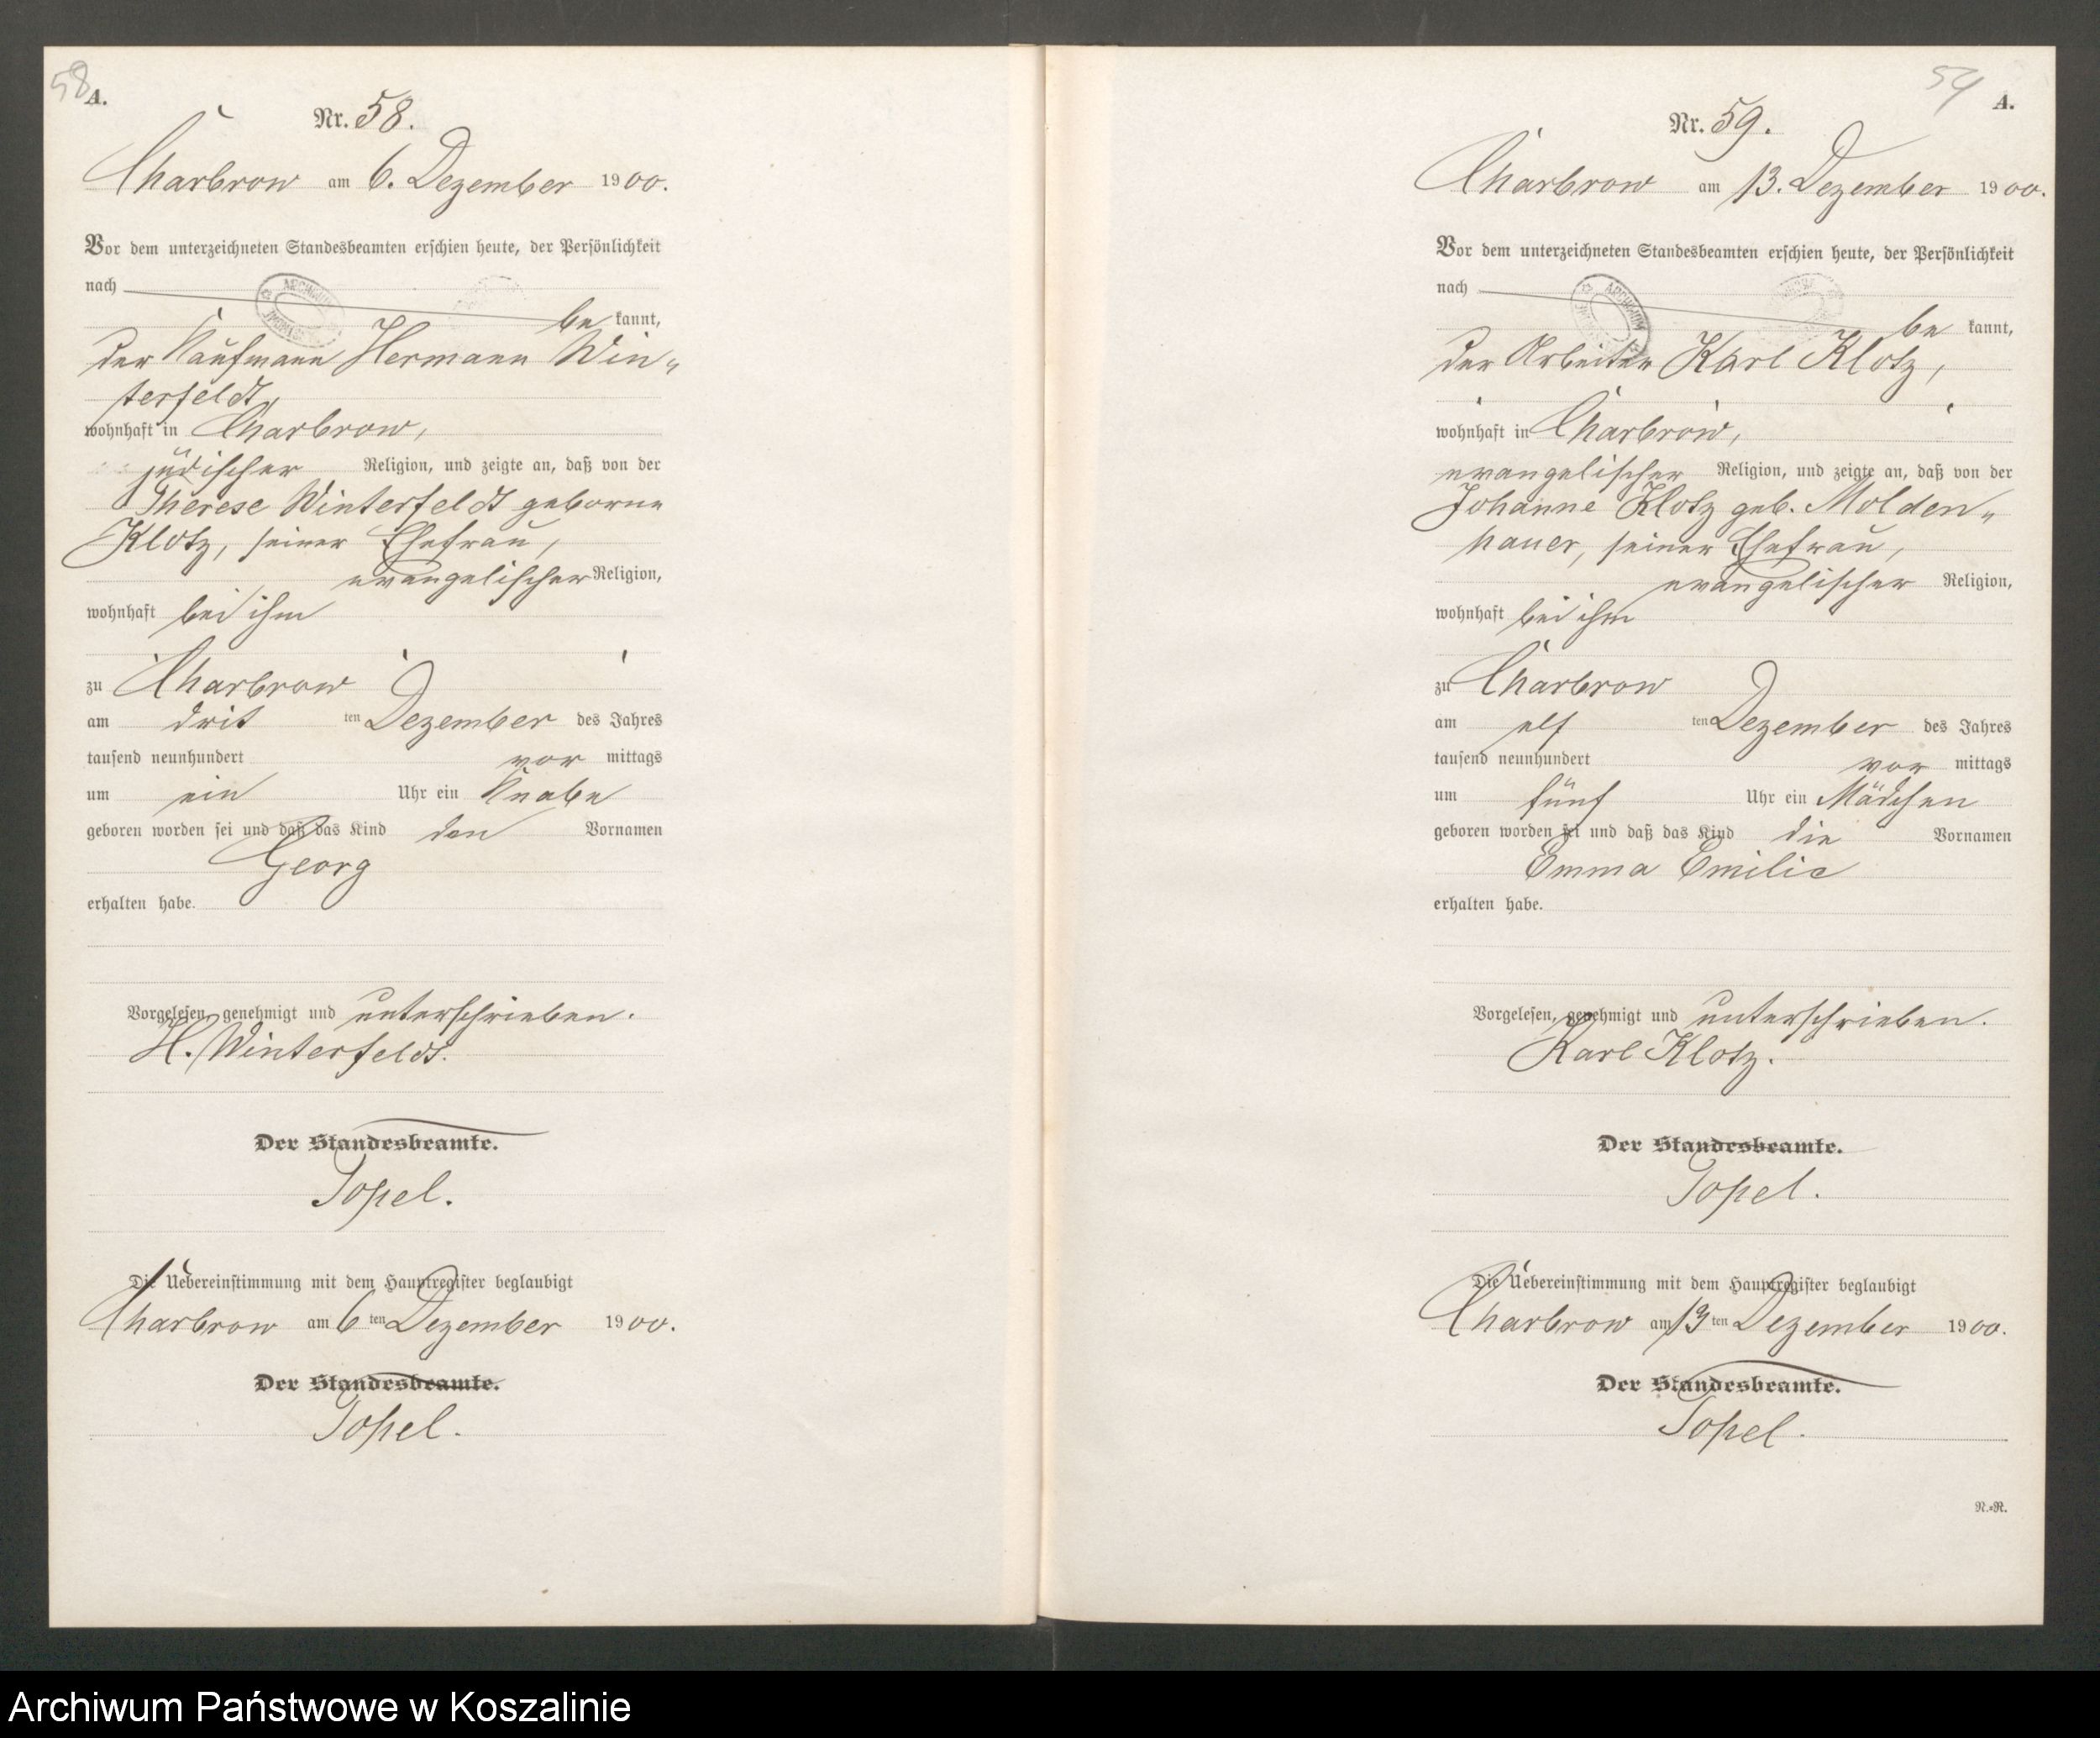 58
A.
Nr. 58.
Charbrow am 6. Dezember 1900.
Vor dem unterzeichneten Standesbeamten erschien heute, der Persönlichkeit
nach
be kannt,
der Kaufmann Hermann Win-
terfeldt,
wohnhaft in Charbrow,
jüdischer Religion, und zeigte an, daß von der
Therese Winterfeldt geborne
Klotz, seiner Ehefrau,
evangelischer Religion,
wohnhaft bei ihm
zu Charbrow
am drit ten Dezember des Jahres
tausend neunhundert vor mittags
um ein Uhr ein Knabe
geboren worden sei und daß das Kind den Vornamen
Georg
erhalten habe.
Vorgelesen, genehmigt und unterschrieben.
H. Winterfeldt.
Der Standesbeamte.
Topel.
Die Uebereinstimmung mit dem Hauptregister beglaubigt
Charbrow am 6 ten Dezember 1900.
Der Standesbeamte.
Topel.
59
A.
Nr. 59.
Charbrow am 13. Dezember 1900.
Vor dem unterzeichneten Standesbeamten erschien heute, der Persönlichkeit
nach
be kannt,
der Arbeiter Karl Klotz,
wohnhaft in Charbrow,
evangelischer Religion, und zeigte an, daß von der
Johanne Klotz geb. Molden-
hauer, seiner Ehefrau,
evangelischer Religion,
wohnhaft bei ihm
zu Charbrow
am elf ten Dezember des Jahres
tausend neunhundert vor mittags
um fünf Uhr ein Mädchen
geboren worden sei und daß das Kind die Vornamen
Emma Emilie
erhalten habe.
Vorgelesen, genehmigt und unterschrieben.
Karl Klotz.
Der Standesbeamte.
Topel.
Die Uebereinstimmung mit dem Hauptregister beglaubigt
Charbrow am 13 ten Dezember 1900.
Der Standesbeamte.
Topel.
N.-R.
Archiwum Państwowe w Koszalinie